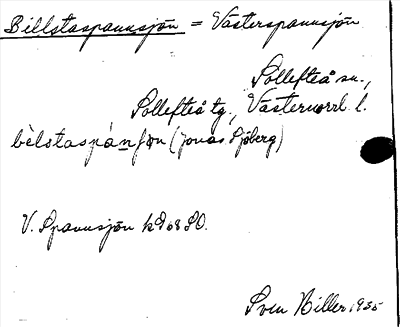 Billstaspannsjön = Västerspannsjön
Sollefteå sn.,
Sollefteå tg., Västernorrl. l.
bèlstaspánʃøn (Jonas Sjöberg)
V. Spannsjön
Sven Hiller 1935